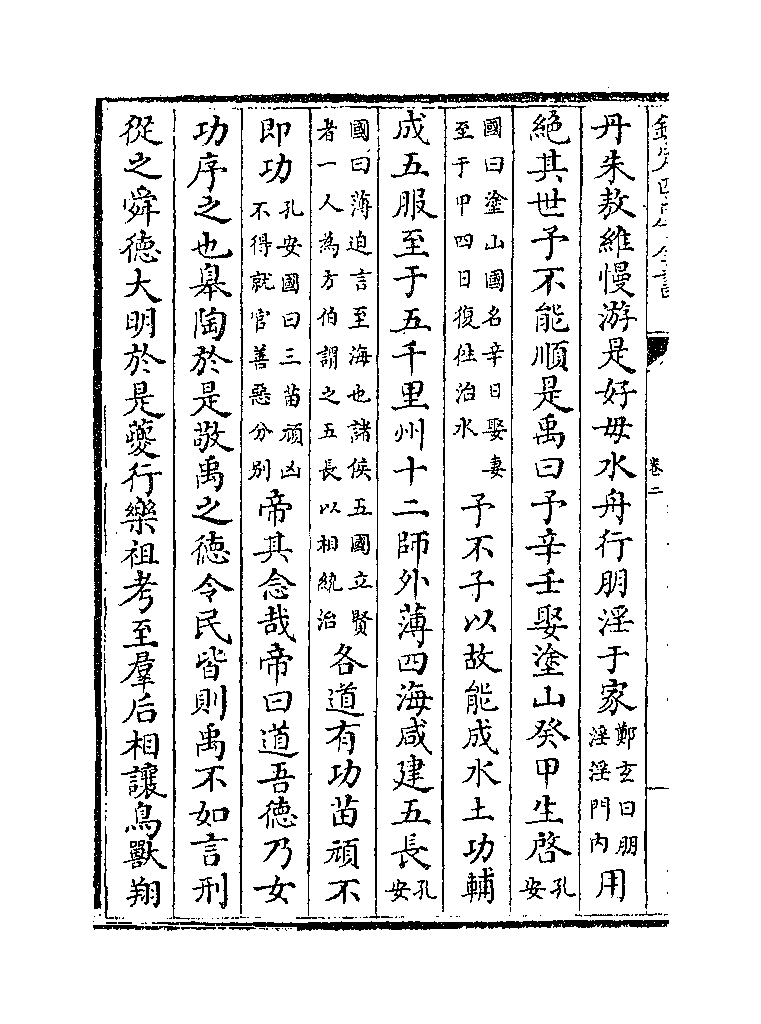 欽定四庫全書
卷二
丹朱敖維慢游是好毋水舟行朋淫于家鄭玄曰朋淫淫門內用
絶其世予不能順是禹曰予辛壬娶塗山癸甲生啓孔安
國曰塗山國名辛日娶妻至于甲四日復往治水予不子以故能成水土功輔
成五服至于五千里州十二師外薄四海咸建五長孔安
國曰薄迫言至海也諸侯五國立賢者一人為方伯謂之五長以相統治各道有功苗頑不
即功孔安國曰三苗頑凶不得就官善惡分別帝其念哉帝曰道吾德乃女
功序之也臯陶於是敬禹之德令民皆則禹不如言刑
從之舜德大明於是夔行樂祖考至羣后相讓鳥獸翔